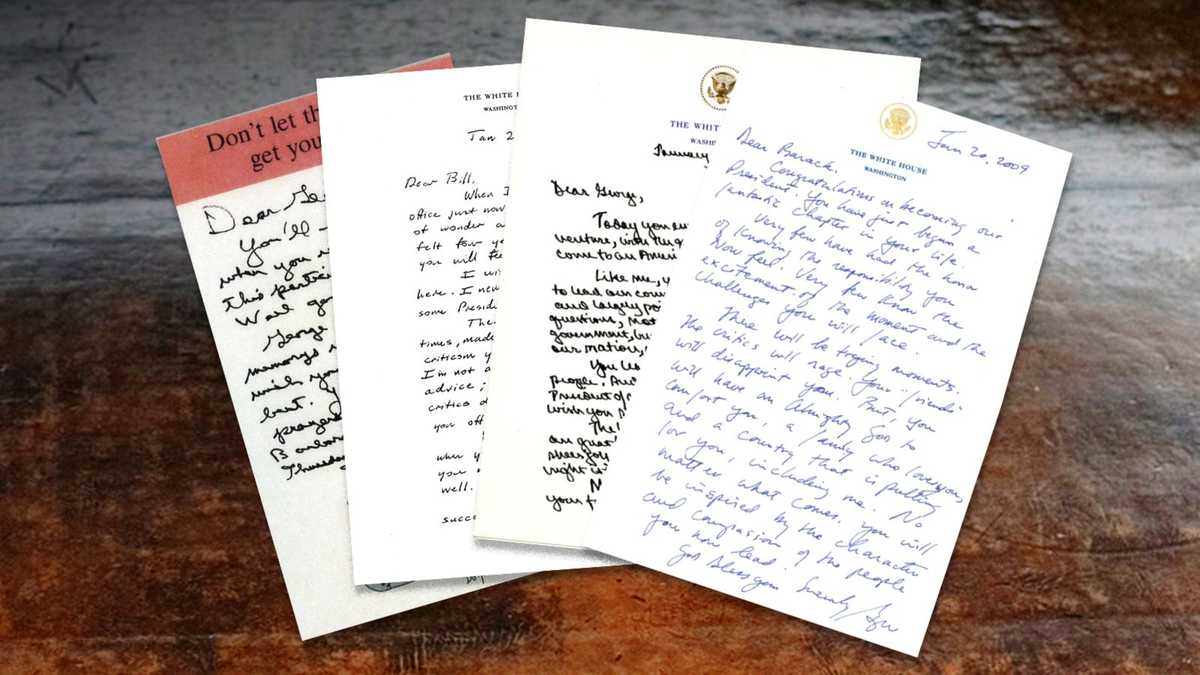 Don't let th
get you
Dear Ge
You'll
when you
this partic
Wall
George
memorys
wish you
best.
prayer
Barbar
Thursda
THE WHITE H
WASHINGT
Jan 2
Dear Bill,
When I
office just now
of wonder a
felt four ye
you will fee
I wi
here. I neve
some Preside
The
times, made
criticism y
I'm not a
advice;
critics d
you off
when y
your
well.
succ
THE WHIT
WASH
January
Dear George,
Today you em
venture, with the g
come to an Ameri
Like me, y
to lead our coun
and largely po
questions, most
government, bu
our nation,
You lea
people. An
President of
wish you
The
are great
shoulde
right is
N
your f
THE WHITE HOUSE
WASHINGTON
Jan 20, 2009
Dear Barack,
Congratulations on becoming our
President. You have just began a
fantastic chapter in your life.
Very few have had the honor
of knowing the responsibility you
now feel. Very few know the
excitement of the moment and the
challenges you will face.
There will be trying moments.
The critics will rage. Your "friends"
will disappoint you. But, you
will have an Almighty God to
comfort you, a family who loves you,
and a country that is pulling
for you, including me. No
matter what comes, you will
be inspired by the character
and compassion of the people
you now lead.
God bless you. Sincerely,